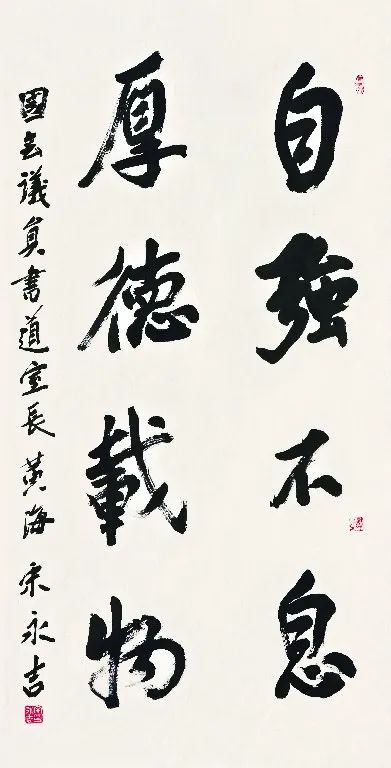 自強不息
厚德載物
國会議員書道室長 黄海 宋永吉